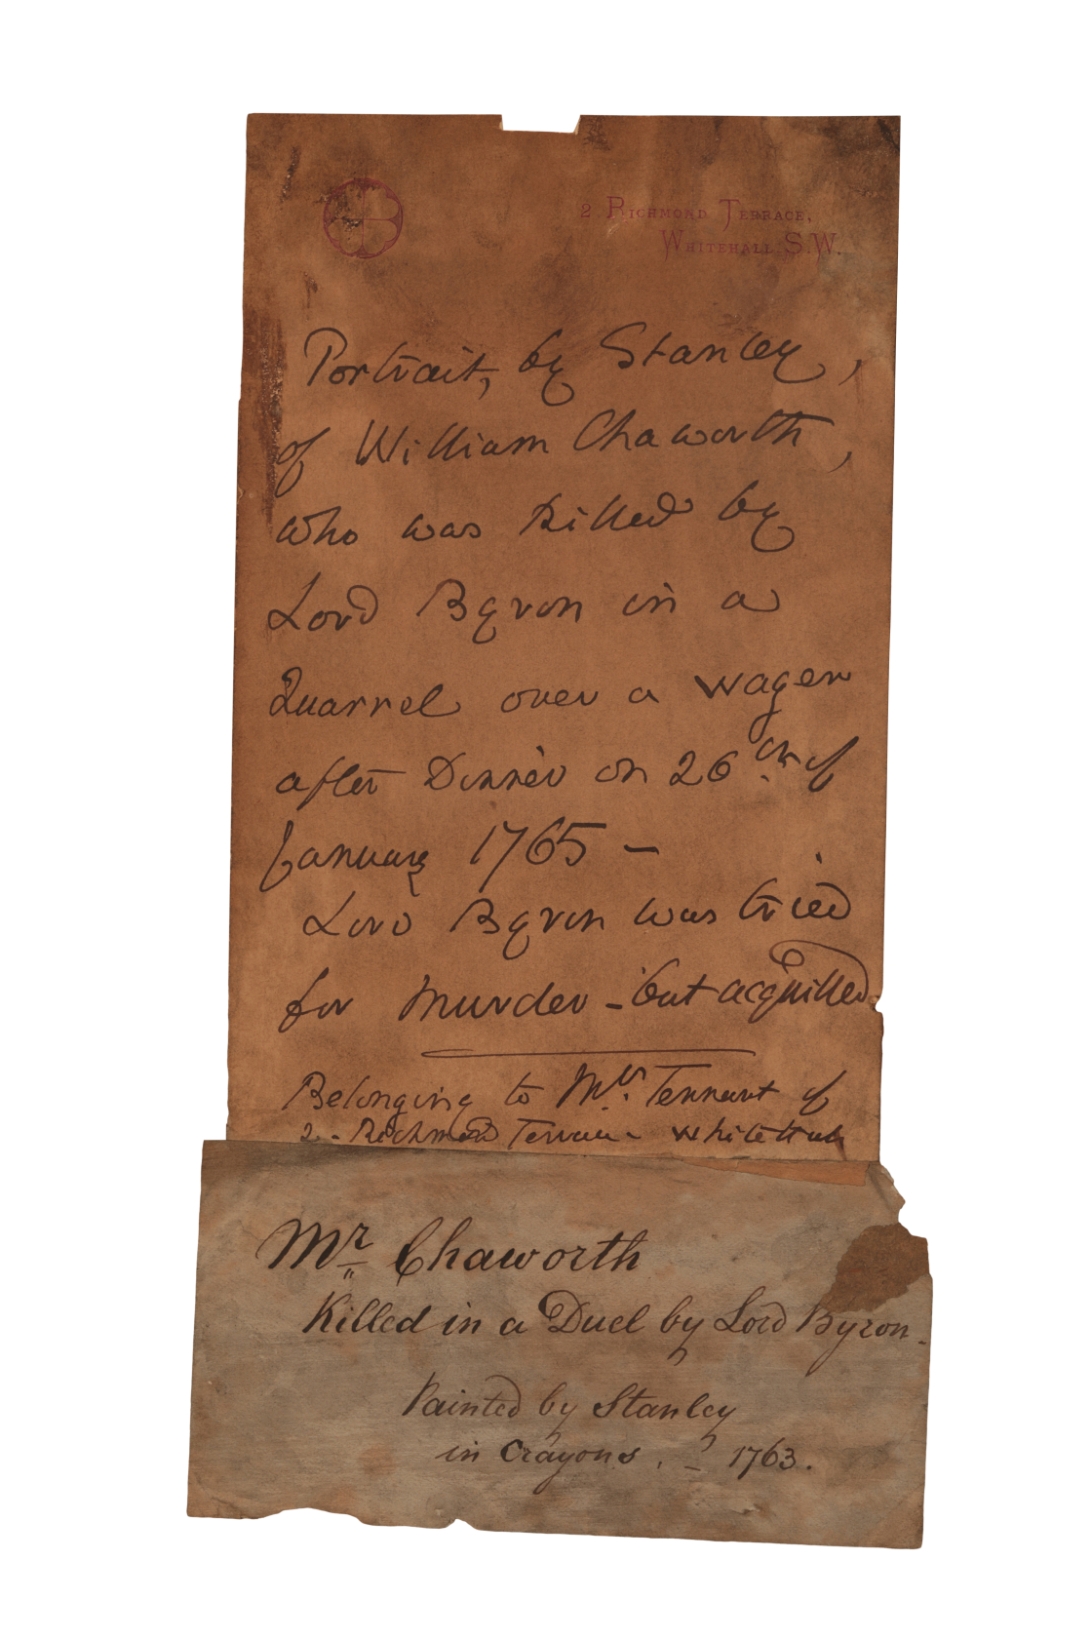 2. Richmond Terrace,
Whitehall. S.W.
Portrait, by Stanley,
of William Chaworth,
who was killed by
Lord Byron in a
Quarrel over a wager
after Dinner on 26th. of
January 1765 –
Lord Byron was tried
for Murder – but acquitted.
Belonging to Mrs. Tennant of
2. Richmond Terrace – Whitehall
Mr Chaworth
Killed in a Duel by Lord Byron –
Painted by Stanley
in Crayons. – 1763.